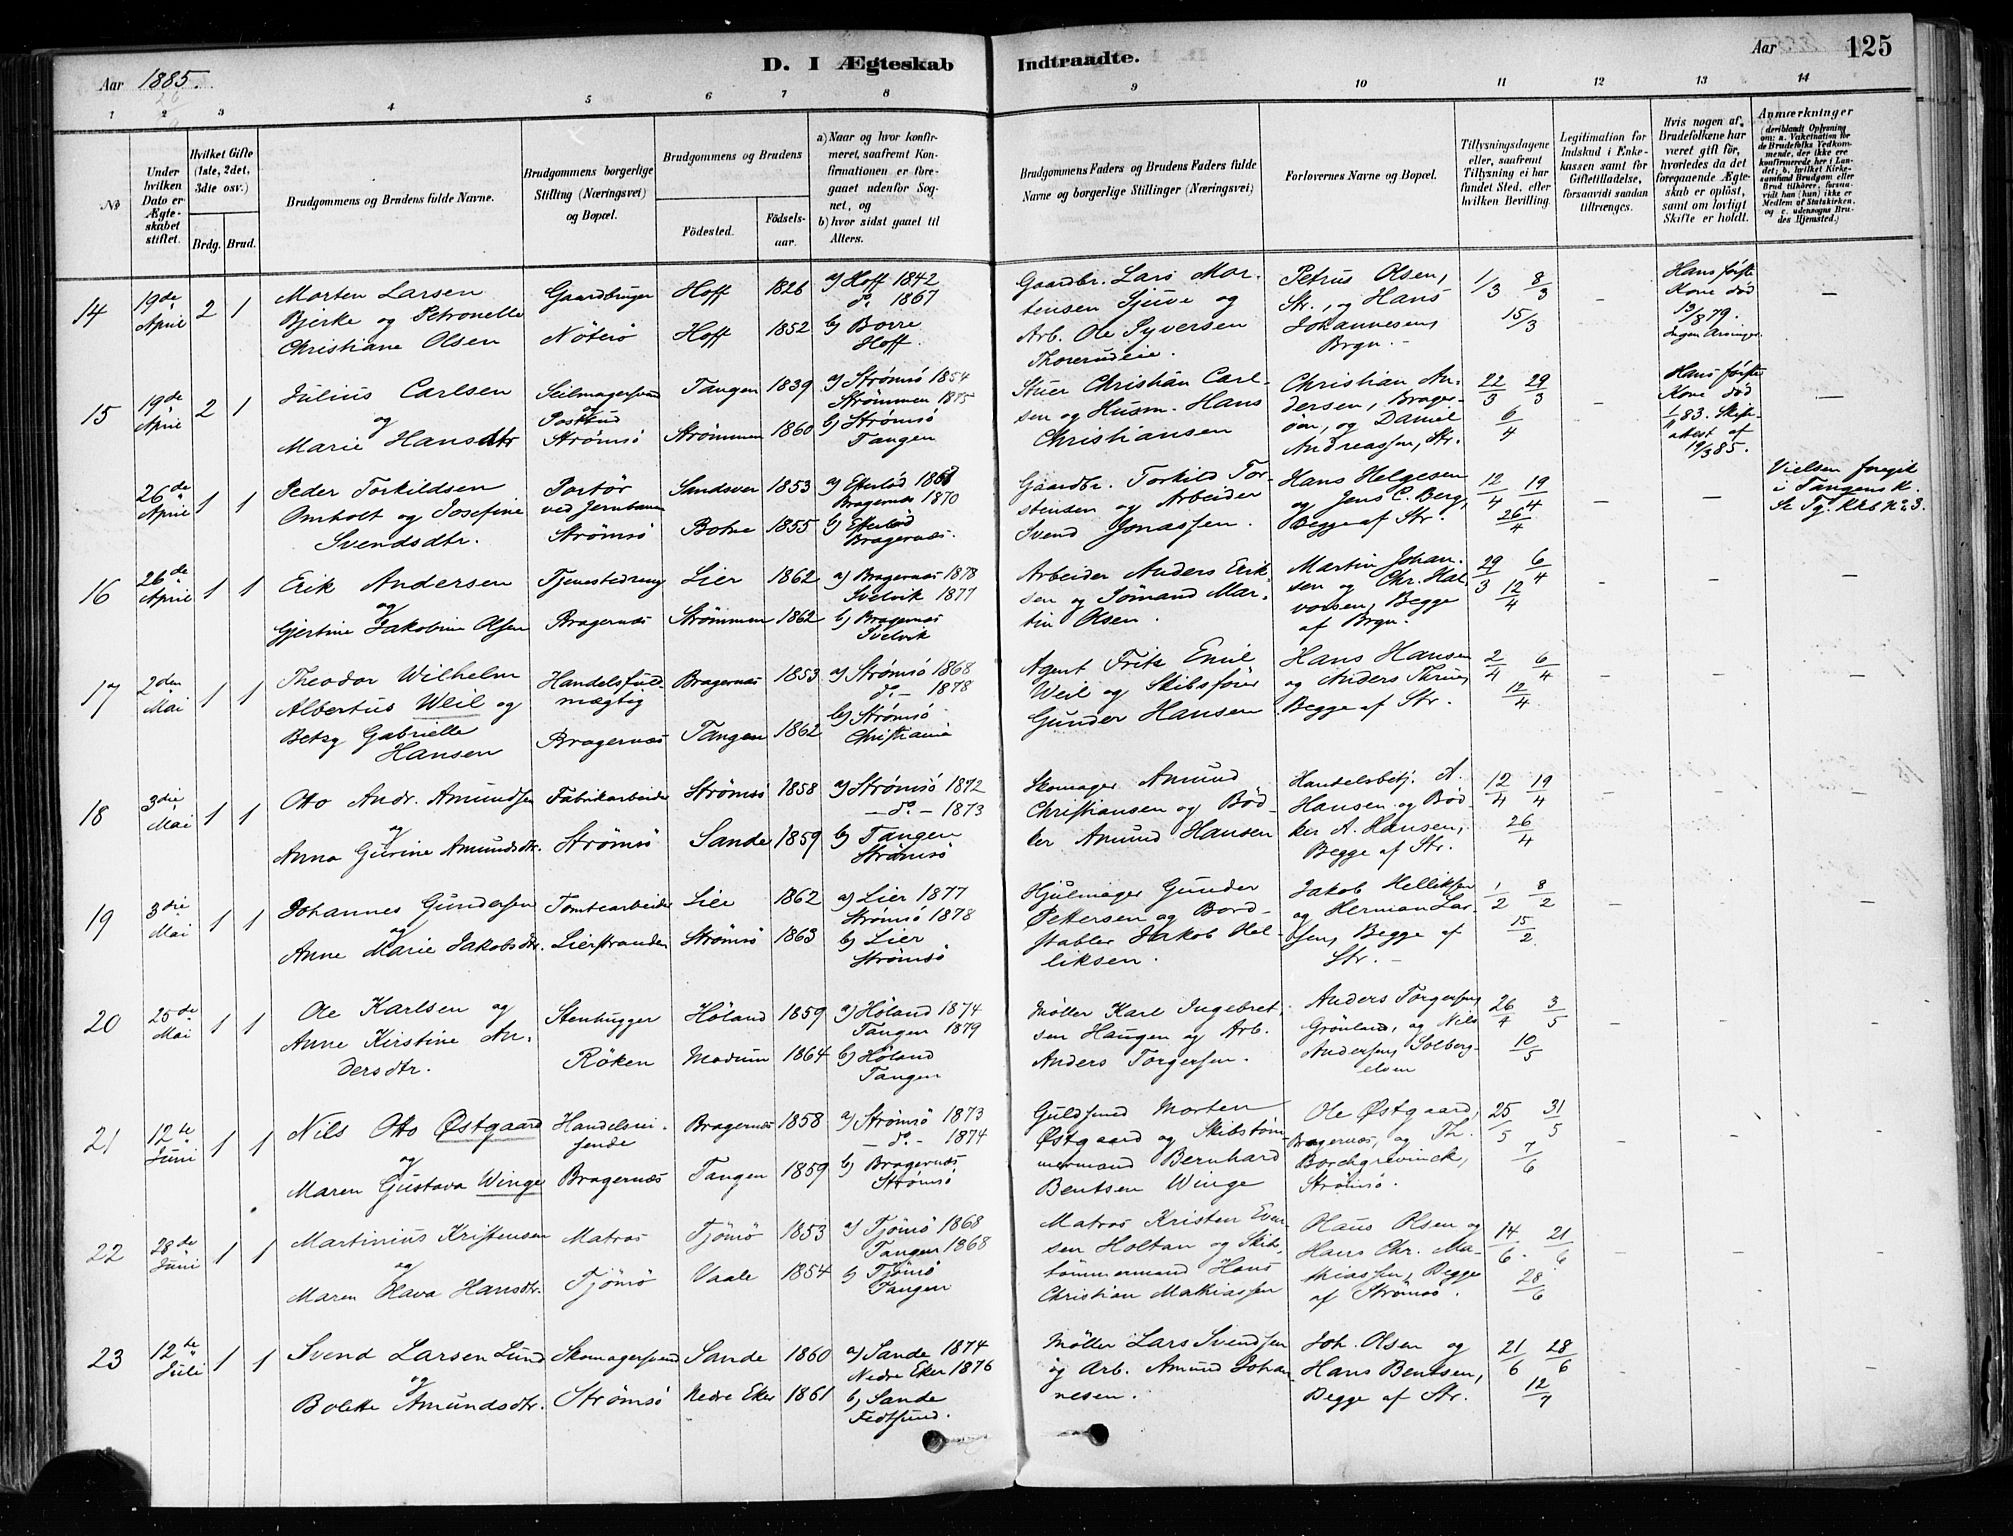 Aar 1885.
D. I Ægteskab Indtraadte.
Aar 125
1 2 3 4 5 6 7 8 9 10 11 12 13 14
No
Under hvilken Dato er Ægteskabet stiftet.
Hvilket Gifte (1ste, 2det, 3die osv.)
Brdg. Brud.
Brudgommens og Brudens fulde Navne.
Brudgommens borgerlige Stilling (Næringsvei) og Bopæl.
Brudgommens og Brudens
Födested. Födselsaar.
a) Naar og hvor konfirmeret, saafremt Konfirmationen er foregaaet udenfor Sognet, og
b) hvor sidst gaaet til Alters.
Brudgommens Faders og Brudens Faders fulde Navne og borgerlige Stillinger (Næringsvei)
Forlovernes Navne og Bopæl.
Tillysningsdagene eller, saafremt Tillysning ei har fundet Sted, efter hvilken Bevilling.
Legitimation for Indskud i Enkekassen samt for Giftetilladelse, forsaavidt saadan tiltrænges.
Hvis nogen af Brudefolkene har været gift för, hvorledes da det foregaaende Ægteskab er oplöst, samt om lovligt Skifte er holdt.
Anmærkninger
(deriblandt Oplysning om: a. Vakcination for de Brudefolks Vedkommende, der ikke ere konfirmerede her i Landet; b. hvilket Kirkesamfund Brudgom eller Brud tilhörer, forsavidt han (hun) ikke er Medlem af Statskirken, og c. udensogns Brudes Hjemsted.)
14 19de April 2 1
Morten Larsen
Bjerke og Petronelle
Christiane Olsen
Gaardbruger
Nöterö
Hoff 1826
Hoff 1852
a) Hoff 1842
do. 1867
b) Borre
Hoff.
Gaardbr. Lars Mortensen Sjuve og
Arb. Ole Syversen
Thorerudeie.
Petrus Olsen,
Str., og Hans
Johannesen,
Brgn.
1/3 8/3
15/3
–
Hans förste
Kone död
13/8 79.
Ingen Arvinger
–
15 19de April 2 1
Julius Carlsen
og
Marie Hansdtr
Seilmagersvend
Strömsö
Tangen 1839
Strömmen 1860
a) Strömsö 1854
Strömmen 1875
b) Strömsö
Tangen
Stuer Christian Carlsen og Husm. Hans
Christiansen
Christian Andersen, Brageröen, og Daniel
Andreassen, Str.
22/3 29/3
6/4
–
Hans förste
Kone död
1/11 83. Skifteattest af
19/3 85.
–
26de April 1 1
Peder Torkildsen
Omholt og Josefine
Svendsdtr.
Portör
ved Jernbanen
Strömsö
Sandsver 1853
Botne 1855
a) Efteröd 1868
Bragernæs 1870
b) Efteröd
Bragernæs.
Gaardbr. Torkild Torstensen og Arbeider
Svend Jonassen.
Hans Helgesen
og Jens C. Berg,
Begge af Str.
12/4 19/4
26/4
–
–
Vielsen foregik
i Tangens K.
Se Tg. KRB No 3.
16 26de April 1 1
Erik Andersen
og
Gjertine Jakobine Olsen
Tjenestedreng
Bragernæs
Lier 1862
Strömmen 1862
a) Bragernæs 1878
Svelvik 1877
b) Bragernæs
Svelvik
Arbeider Anders Eriksen og Sömand Martin Olsen.
Martin Johansen og Chr. Halvorsen, Begge
af Brgn.
29/3 6/4
12/4
– – –
17 2den Mai 1 1
Theodor Wilhelm
Albertus Weil og
Betsy Gabrielle
Hansen
Handelsfuldmægtig
Bragernæs
Bragernæs 1853
Tangen 1862
a) Strömsö 1868
do.– 1878
b) Strömsö
Christiania
Agent Fritz Emil
Weil og Skibsförer
Gunder Hansen
Hans Hansen
og Anders Thrue,
Begge af Str.
2/4 6/4
12/4
– – –
18 3die Mai 1 1
Otto Andr. Amundsen
og
Anna Gurine Amundsdtr.
Fabrikarbeider
Strömsö
Strömsö 1858
Sande 1859
a) Strömsö 1872
– do. – 1873
b) Tangen
Strömsö
Skomager Amund
Christiansen og Bödker Amund Hansen
Handelsbetj. A.
Hansen og Bödker A. Hansen,
Begge af Str.
12/4 19/4
26/4
– – –
19 3die Mai 1 1
Johannes Gundersen
og
Anne Marie Jakobsdtr.
Tomtearbeider
Lierstranden
Lier 1862
Strömsö 1863
a) Lier 1877
Strömsö 1878
b) Lier
Strömsö
Hjulmager Gunder
Pettersen og Bordstabler Jakob Helliksen.
Jakob Helliksen
og Herman Larsen, Begge af
Str. –
1/2 8/2
15/2
– – –
20 25de Mai 1 1
Ole Karlsen og
Anne Kirstine Andersdtr.
Stenhugger
Röken
Höland 1859
Modum 1864
a) Höland 1874
Tangen 1879
b) Höland
Tangen
Möller Karl Ingebretsen Haugen og Arb.
Anders Torgersen.
Anders Torgersen,
Grönland, og Nils
Andersen, Solbergelven
26/4 3/5
10/5
– – –
21 12te Juni 1 1
Nils Otto Østgaard
og
Maren Gustava Winge
Handelsreisende
Bragernæs
Bragernæs 1858
Tangen 1859
a) Strömsö 1873
– do. – 1874
b) Bragernæs
Strömsö
Guldsmed Morten
Østgaard og Skibstömmermand Bernhard
Bentsen Winge
Ole Østgaard,
Bragernæs, og Th.
Borchgrevinck,
Strömsö.
25/5 31/5
7/6
– – –
22 28de Juni 1 1
Martinius Kristensen
og
Maren Hava Hansdtr.
Matros
Tjömö
Tjömö 1853
Vaale 1854
a) Tjömö 1868
Tangen 1868
b) Tjömö
Tangen
Matros Kristen Evensen Holtan og Skibstömmermand Hans
Christian Mathiassen
Hans Olsen og
Hans Chr. Mathiassen, Begge
af Strömsö.
14/6 21/6
28/6
– – –
23 12te Juli 1 1
Svend Larsen Lund
og
Bolette Amundsdtr.
Skomagersvend
Strömsö
Sande 1860
Nedre Eker 1861
a) Sande 1874
Nedre Eker 1876
b) Sande
Möller Lars Svendsen
og Arb. Amund Johannesen.
Joh. Olsen og
Hans Bentsen,
Begge af Str.
21/6 28/6
12/7
– – –